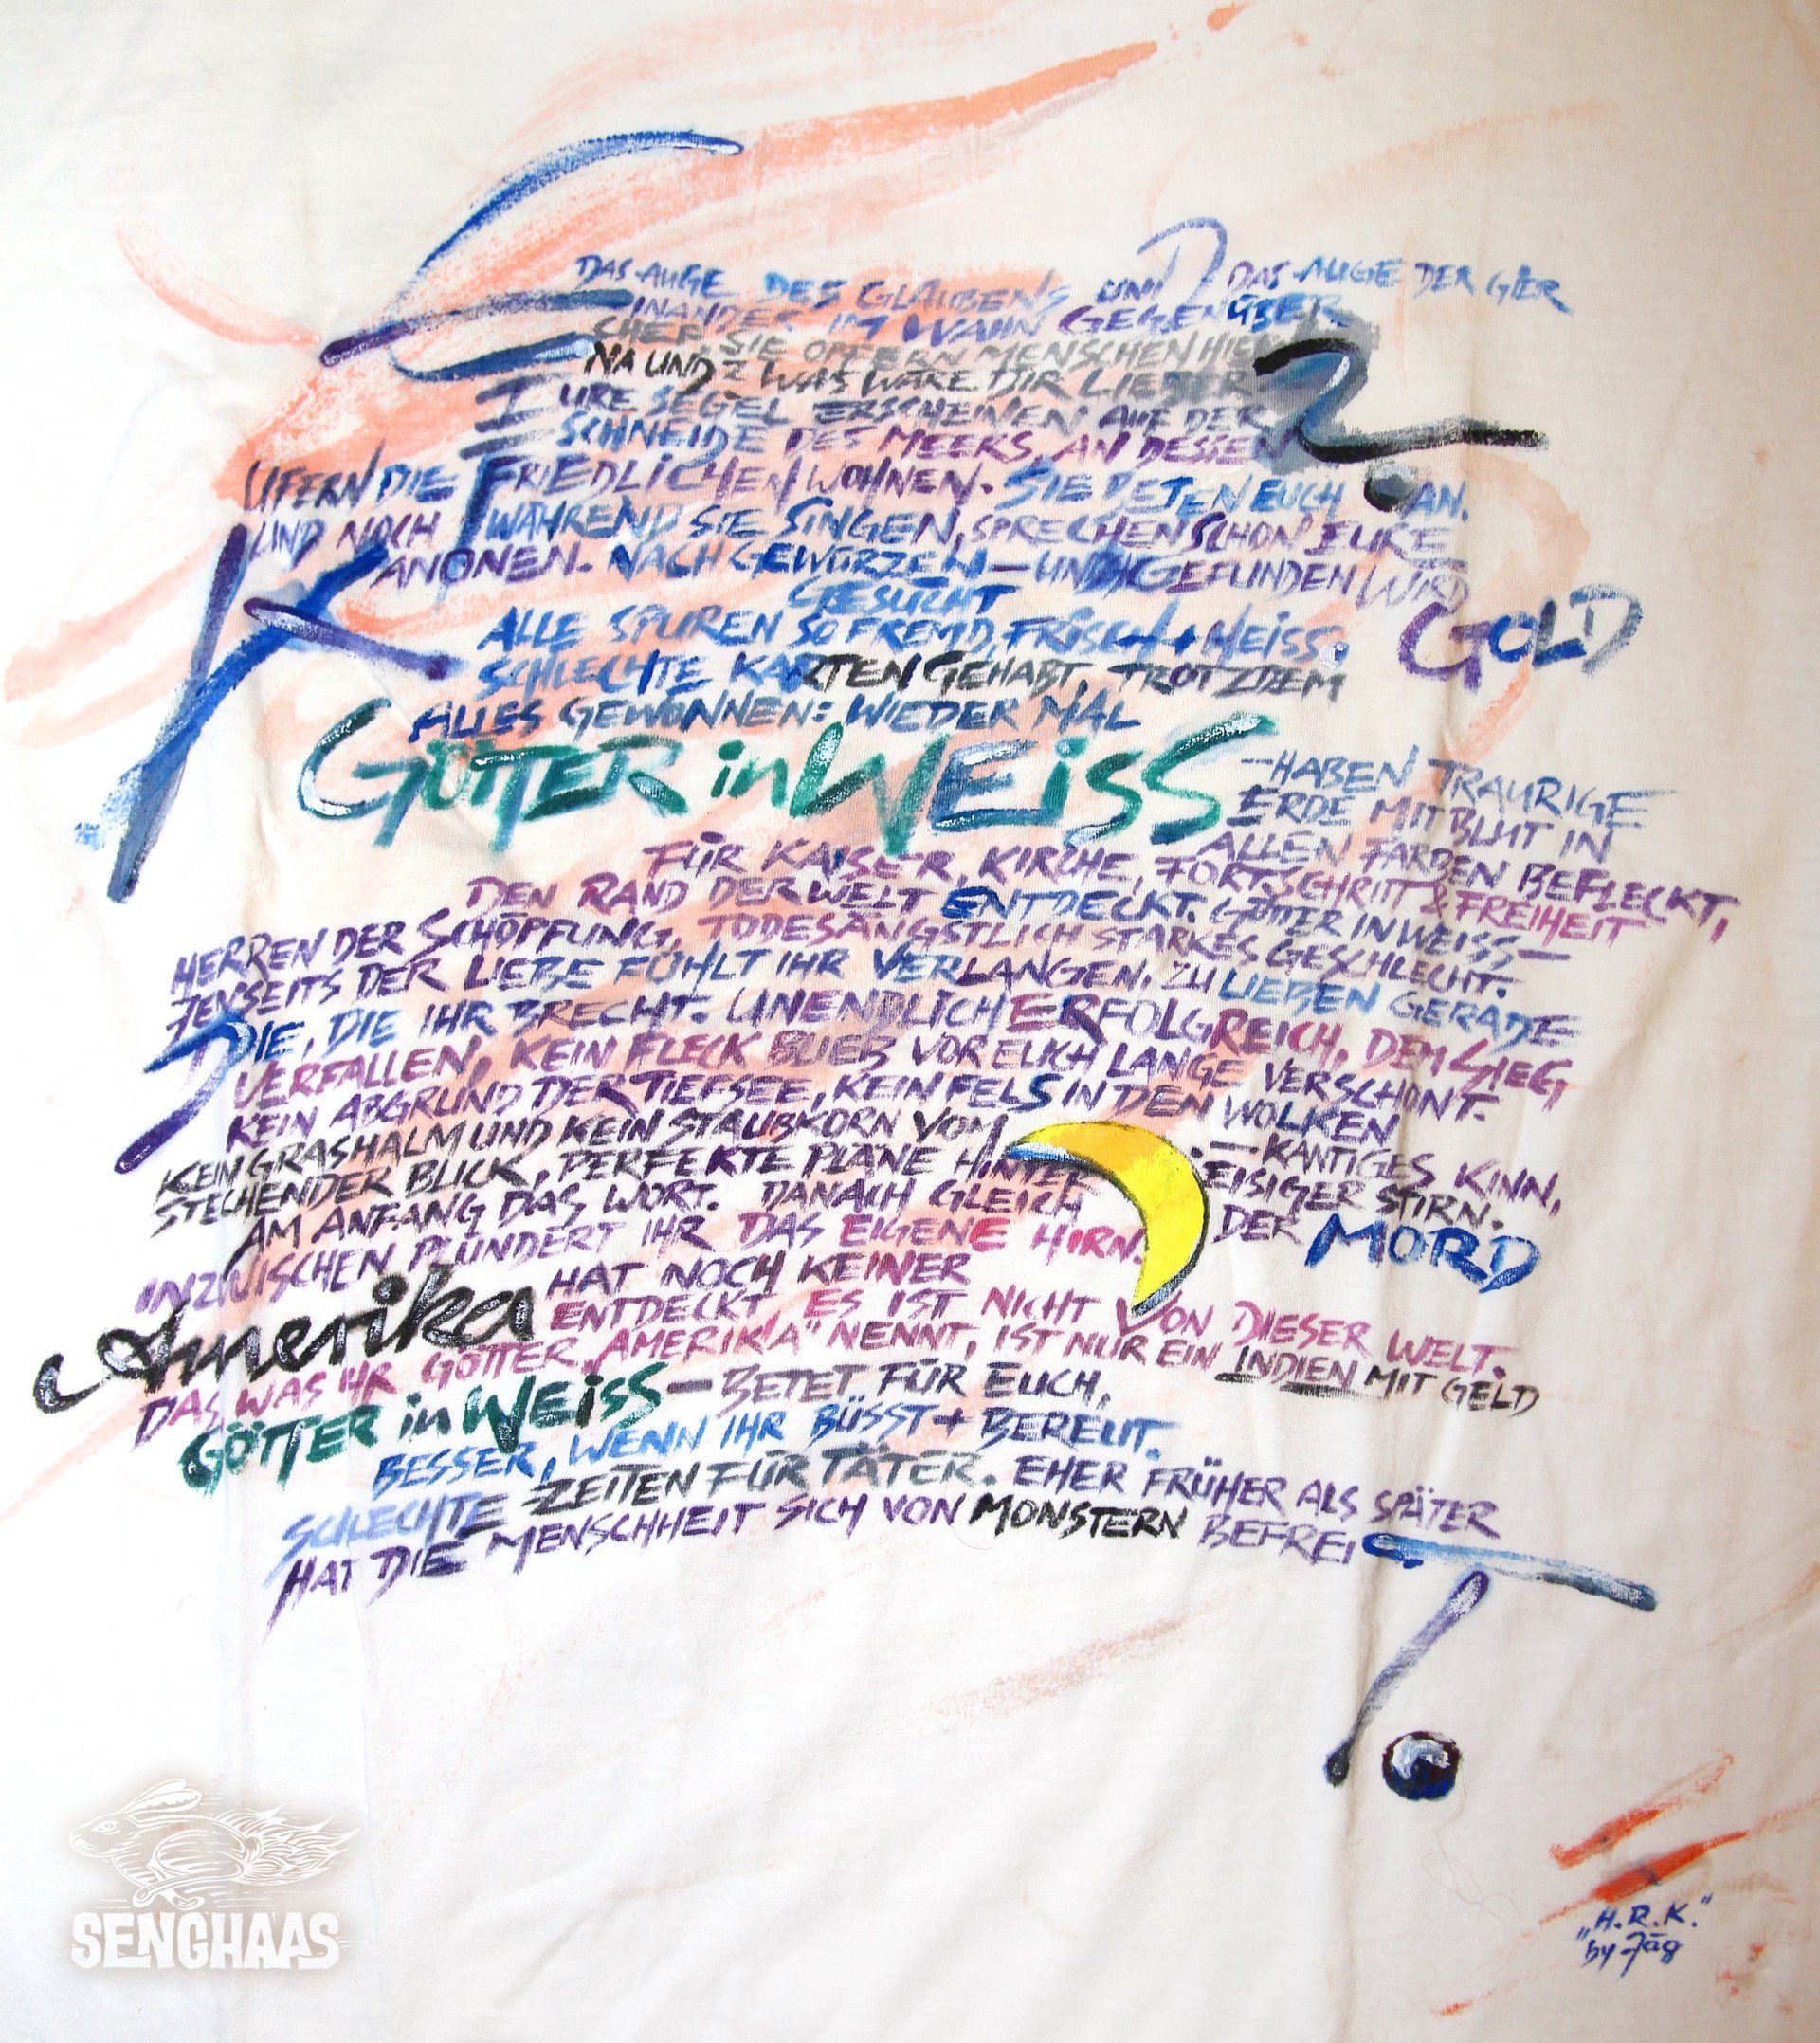 DAS AUGE DES GLAUBENS UND DAS AUGE DER GIER
EINANDER IM WAHN GEGENÜBER
CHER SIE OPFERN MENSCHEN HIER
NA UND? WAS WÄRE DIR LIEBER?
EURE SEGEL ERSCHEINEN AUF DER
SCHNEIDE DES MEERS, AN DESSEN
UFERN DIE FRIEDLICHEN WOHNEN. SIE BETEN EUCH AN.
UND NOCH WÄHREND SIE SINGEN, SPRECHEN SCHON EURE
KANONEN. NACH GEWÜRZEN – UND GEFUNDEN WIRD
GESUCHT
GOLD
ALLE SPUREN SO FREMD, FRISCH + HEISS.
SCHLECHTE KARTEN GEHABT, TROTZDEM
ALLES GEWONNEN: WIEDER MAL
GÖTTER in WEISS
– HABEN TRAURIGE
ERDE MIT BLUT IN
ALLEN FARBEN BEFLECKT,
FÜR KAISER, KIRCHE, FORTSCHRITT & FREIHEIT
DEN RAND DER WELT ENTDECKT. GÖTTER IN WEISS –
HERREN DER SCHÖPFUNG, TODESÄNGSTLICH STARKES GESCHLECHT.
JENSEITS DER LIEBE FÜHLT IHR VERLANGEN, ZU LIEBEN GERADE
DIE, DIE IHR BRECHT. UNENDLICH ERFOLGREICH, DEM SIEG
VERFALLEN, KEIN FLECK BLIEB VOR EUCH LANGE VERSCHONT.
KEIN ABGRUND DER TIEFSEE, KEIN FELS IN DEN WOLKEN
KEIN GRASHALM UND KEIN STAUBKORN VOM . – KANTIGES KINN,
STECHENDER BLICK, PERFEKTE PLÄNE HINTER EISIGER STIRN.
AM ANFANG DAS WORT. DANACH GLEICH DER MORD
INZWISCHEN PLÜNDERT IHR DAS EIGENE HIRN.
Amerika HAT NOCH KEINER
ENTDECKT, ES IST NICHT VON DIESER WELT.
DAS WAS IHR GÖTTER „AMERIKA" NENNT, IST NUR EIN INDIEN MIT GELD
GÖTTER in WEISS – BETET FÜR EUCH,
BESSER, WENN IHR BÜSST + BEREUT.
SCHLECHTE ZEITEN FÜR TÄTER. EHER FRÜHER ALS SPÄTER
HAT DIE MENSCHHEIT SICH VON MONSTERN BEFREIT.
„H.R.K."
by Jäg
SENGHAAS